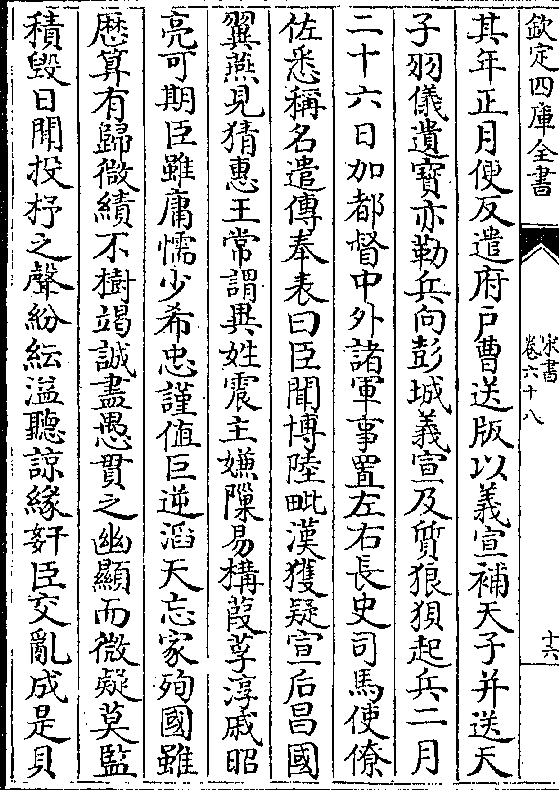 欽定四庫全書
宋書
卷六十八
十六
其年正月便反遣府戸曹送版以義宣補天子并送天
子羽儀遺寶亦勒兵向彭城義宣及質狼狽起兵二月
二十六日加都督中外諸軍事置左右長史司馬使僚
佐悉稱名遣傳奉表曰臣聞博陸毗漢獲疑宣后昌國
翼燕見猜惠王常謂異姓震主嫌隟易構葭莩淳戚昭
亮可期臣雖庸懦少希忠謹值巨逆滔天忘家殉國雖
厯算有歸微績不樹竭誠盡愚貫之幽顯而微疑莫監
積毁日聞投杼之聲紛紜溢聽諒緣姧臣交亂成是貝